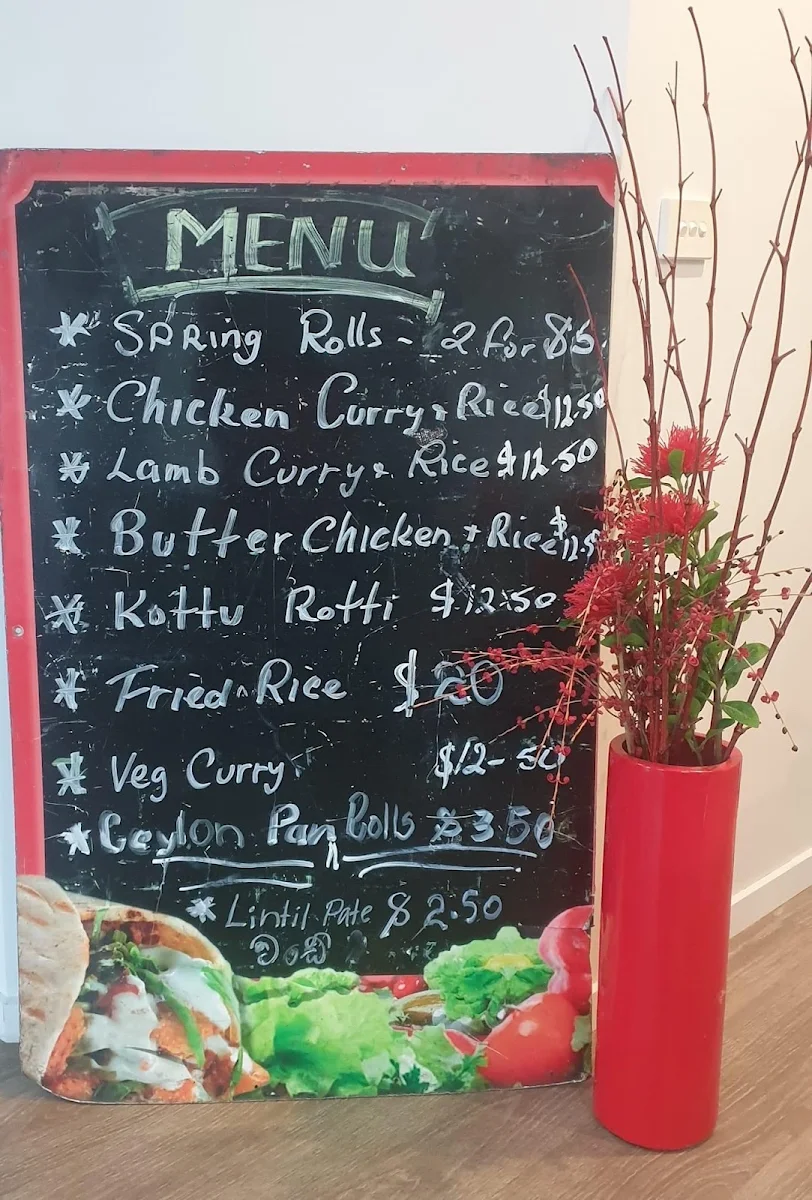 MENU
* Spring Rolls - 2 for $5
* Chicken Curry + Rice $12.50
* Lamb Curry + Rice $12.50
* Butter Chicken + Rice
* Kottu Rotti $12.50
* Fried Rice $20
* Veg Curry $12-50
* Ceylon Pan Rolls $3.50
* Lintil Pate $2.50